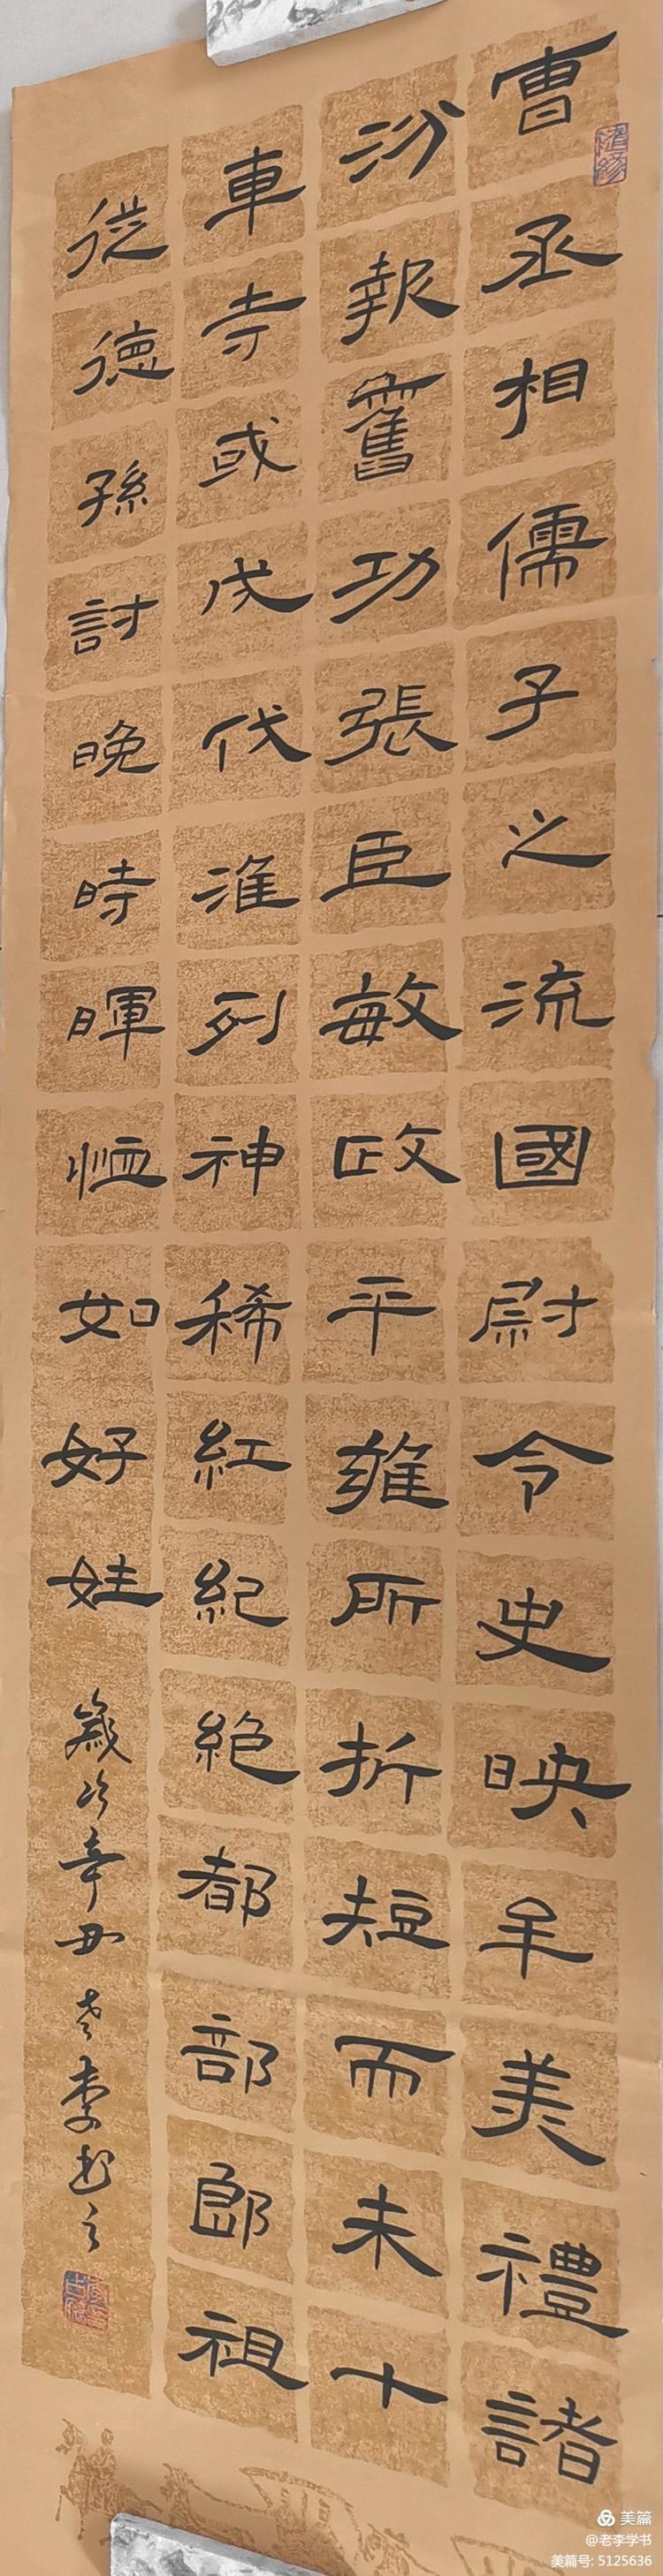 曹丞相儒子之流國尉令史映羊美禮諸
汾報舊功張臣敏政平雍所折短而未十
車寺或戊代淮列神稀紅紀絶都部郎祖
從德孫討晚時暉恤如好娃
歲次辛丑老李书之
美篇
@老李学书
美篇号: 5125636